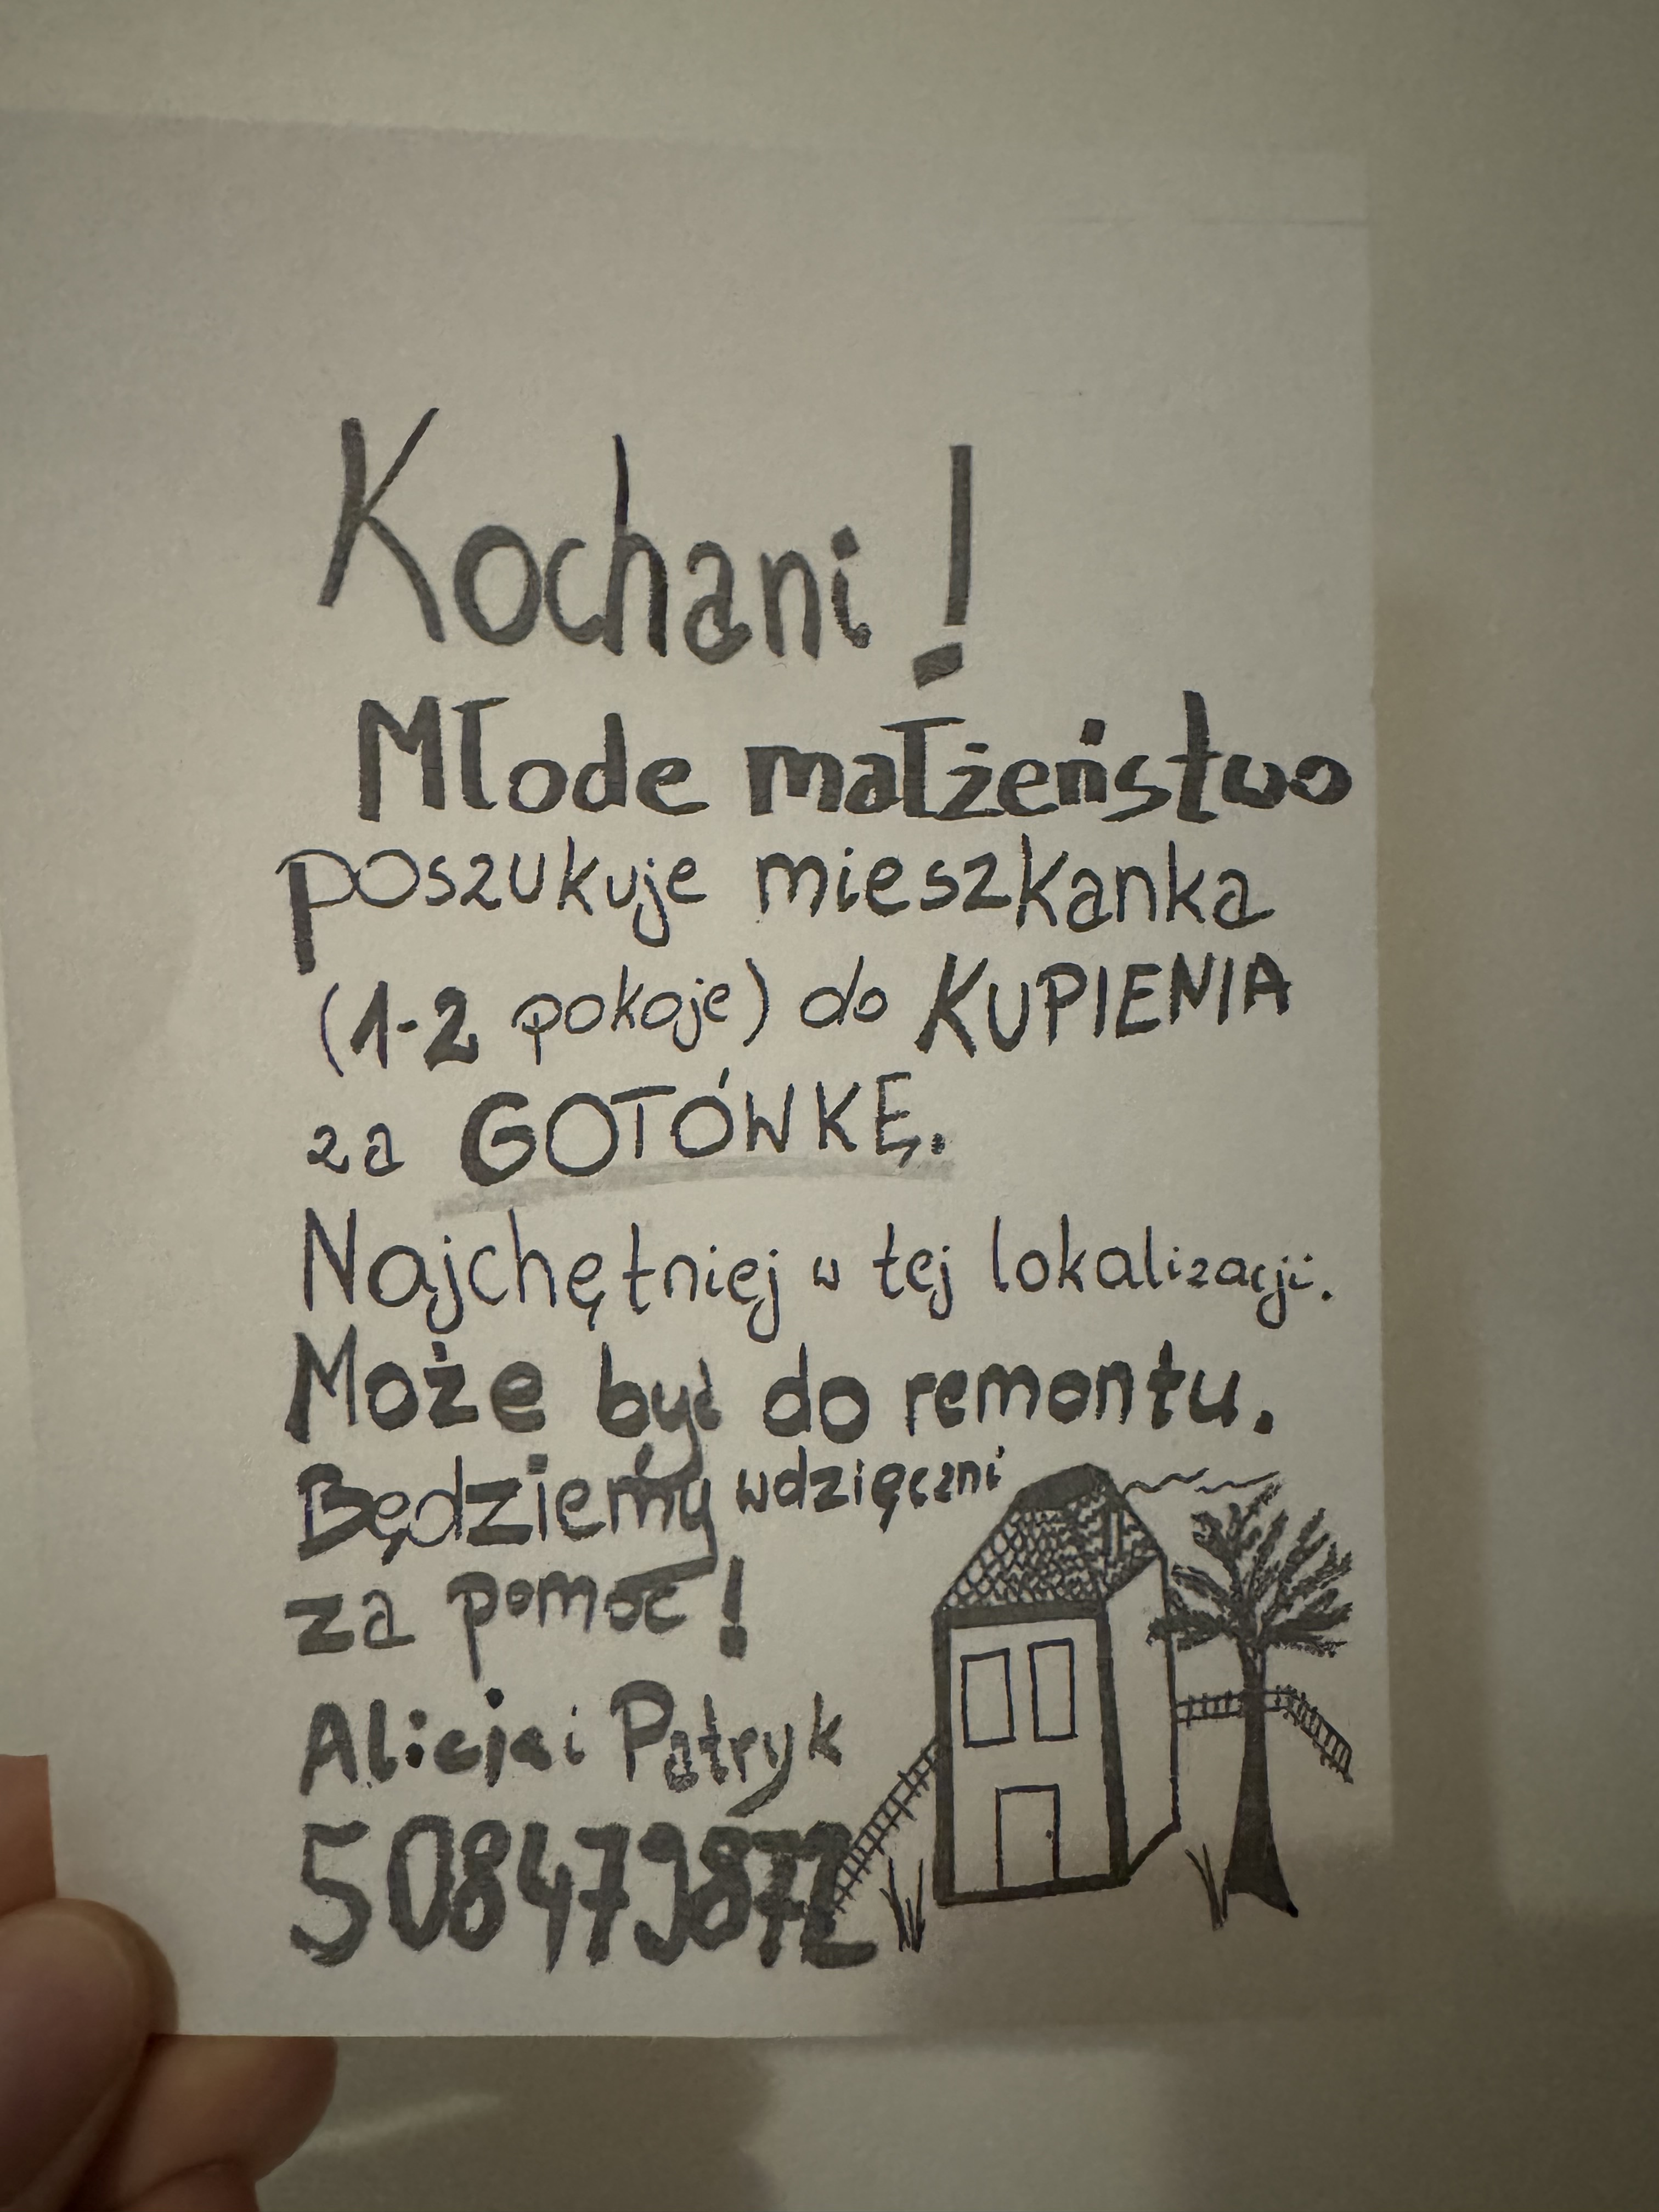 Kochani!
Młode małżeństwo
poszukuje mieszkanka
(1-2 pokoje) do KUPIENIA
za GOTÓWKĘ.
Najchętniej w tej lokalizacji.
Może być do remontu.
Będziemy wdzięczni
za pomoc!
Alicja i Patryk
508479872